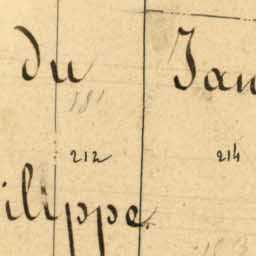 du Jan
181
212 214
ilippe